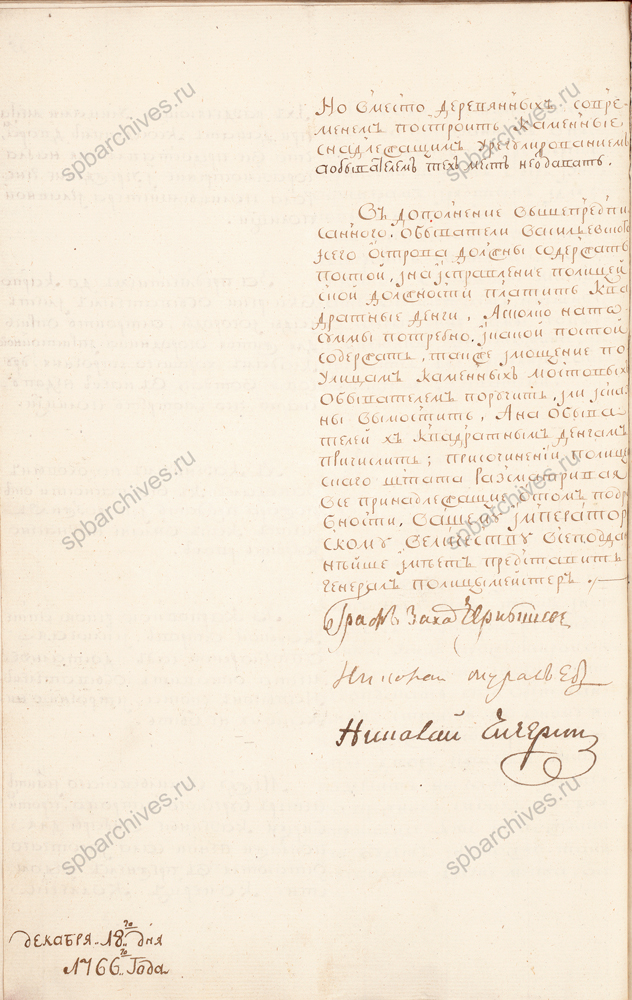 Но вместо деревянныхъ совре-
менемъ построить каменныє
снадлежащимъ урегулированиемъ
аобывателемъ тѣхъ мѣстъ неотдавать.
Въ дополнение вышепредпи
санного. Обыватели василъевско
островa должны содержать
постой, инаисправление полицей
ской должности платить ква
дратные денги, Асколко нато
суммы потребно, икакой постой
содержать, также имощение по
улицамъ каменныхъ мостовыхъ
Обывателемъ поручить, или
вымостить, Ана обыва
телей къ квадратнымъ денгамъ
причислить; присочинении полиц
скаго штата разсматривая
все принадлежащие отомъ подр
бности, вашему император
скому величеству всеподда
нѣйше имѣетъ представить
генералъ полицымейстеръ.
Графъ Заха Чернышевъ
Николай Муравьевъ
Николай Чичерин
декабря 18го дня
1766го Года
spbarchives.ru
spbarchives.ru
spbarchives.ru
spbarchives.ru
spbarchives.ru
spbarchives.ru